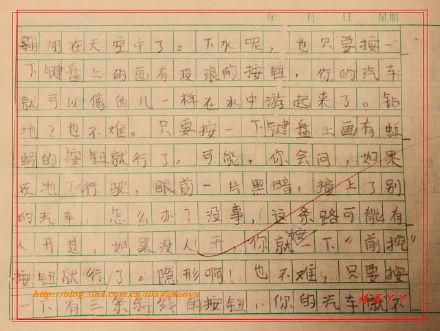 年 月 日 星期
翱翔在天空中了。下水呢，也只要按一
下键盘上的画有波浪的按钮，你的汽车
就可以像鱼儿一样在水中游起来了。钻
地？也不难。只要按一下键盘上画有蚯
蚓的按钮就行了。可能，你会问，如果
在地下行驶，眼前一片黑暗，撞上了别
的汽车，怎么办？没事，这条路可能有
人开过，如果没人开，你就按一下“前挖”
按钮就行了。隐形啊！也不难，只要按
一下有三条斜线的按钮，你的汽车就不
http://blog.sina.com.cn